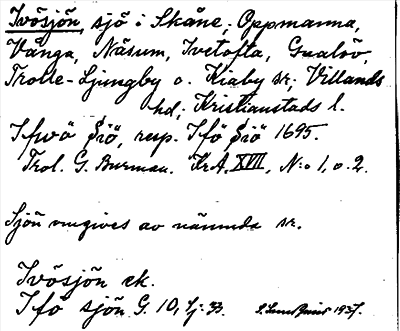 Ivösjön, sjö i Skåne; Oppmanna,
Vånga, Näsum, Ivetofta, Gualöv,
Trolle-Ljungby o. Kiaby sr; Villands
hd; Kristianstads l.
Ifwö Siö, resp. Ifö Siö 1695.
Trol. G. Burman. KrA, XVII, N:o 1, o. 2.
Sjön omgives av nämnda sr.
Ivösjön ek.
Ifö sjön G. 10, 4j: 33. 1937.